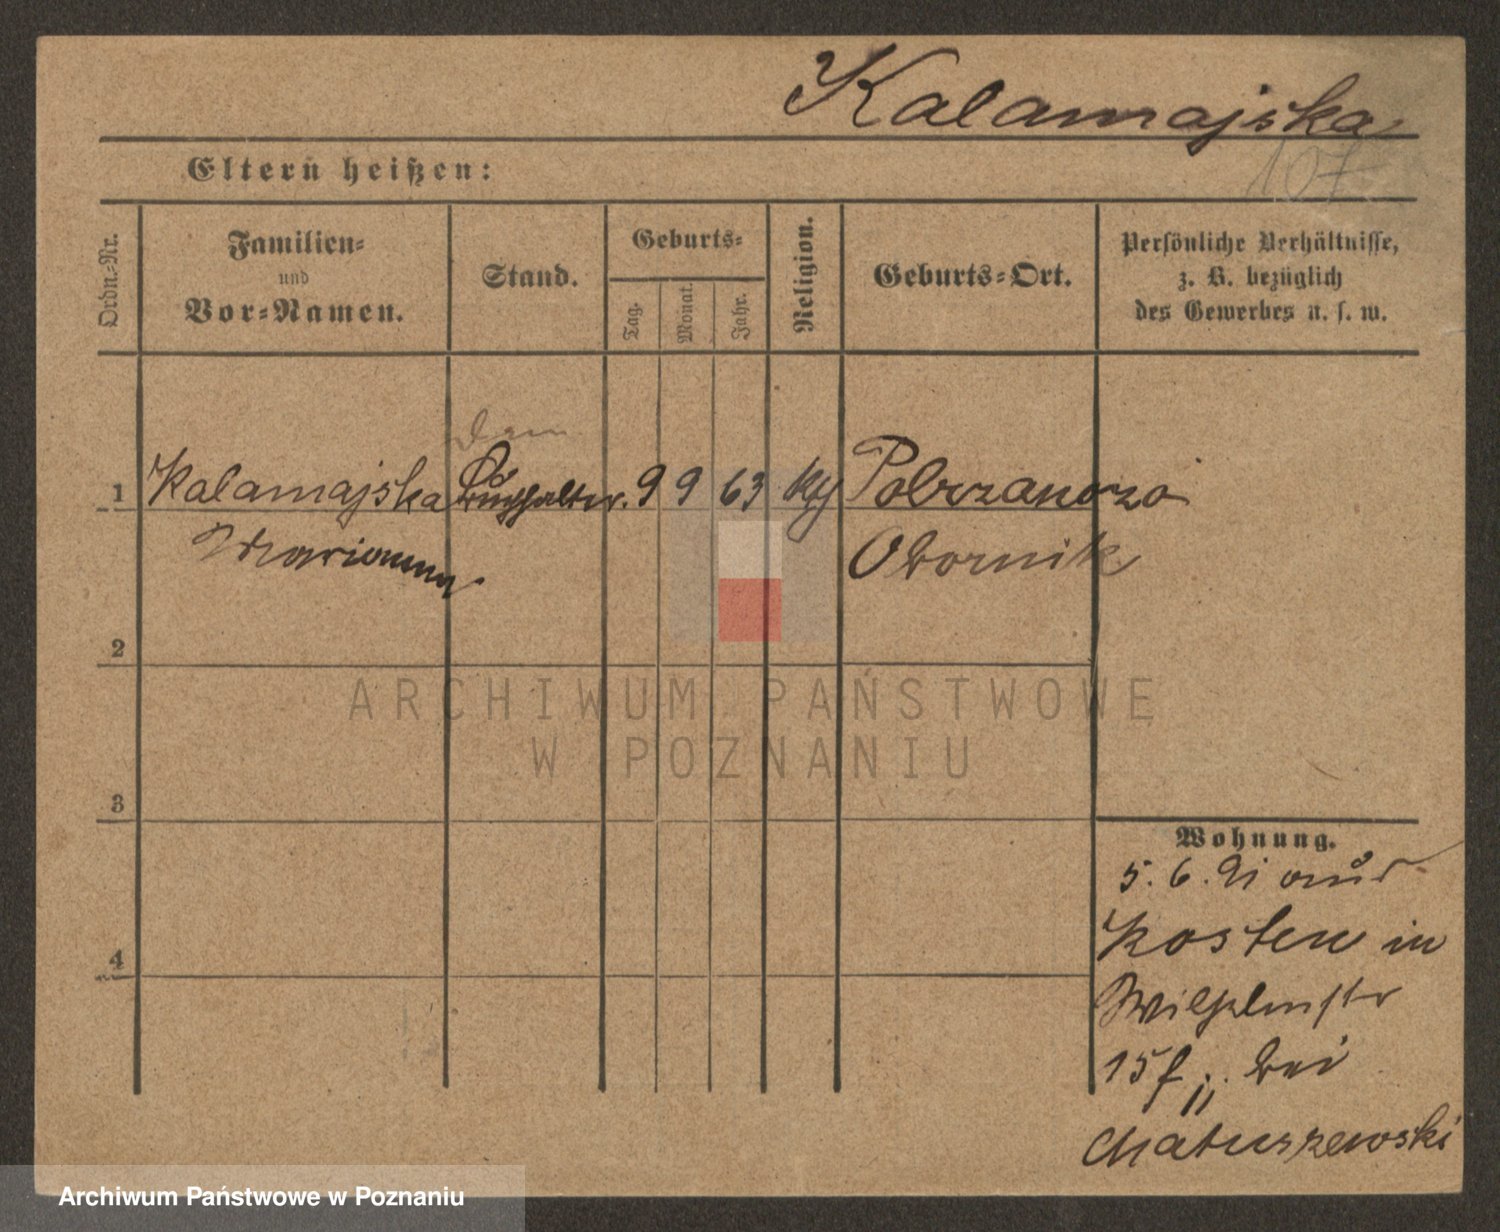 Kalamajska
107
Eltern heißen:
Ordn.-Nr.
Familien-
und
Vor-Namen.
Stand.
Geburts-
Tag.
Monat.
Jahr.
Religion.
Geburts-Ort.
Persönliche Verhältnisse,
z. B. bezüglich
des Gewerbes u. s. w.
1 Kalamajska Buchhalter. 9 9 63 kth Pobrzanorzo
Marianna Obornik
2
3
4
Wohnung.
5. 6. 91 aus
Kosten in
Wilhelmstr
15 f II bei
Matuszewski
ARCHIWUM PAŃSTWOWE
W POZNANIU
Archiwum Państwowe w Poznaniu